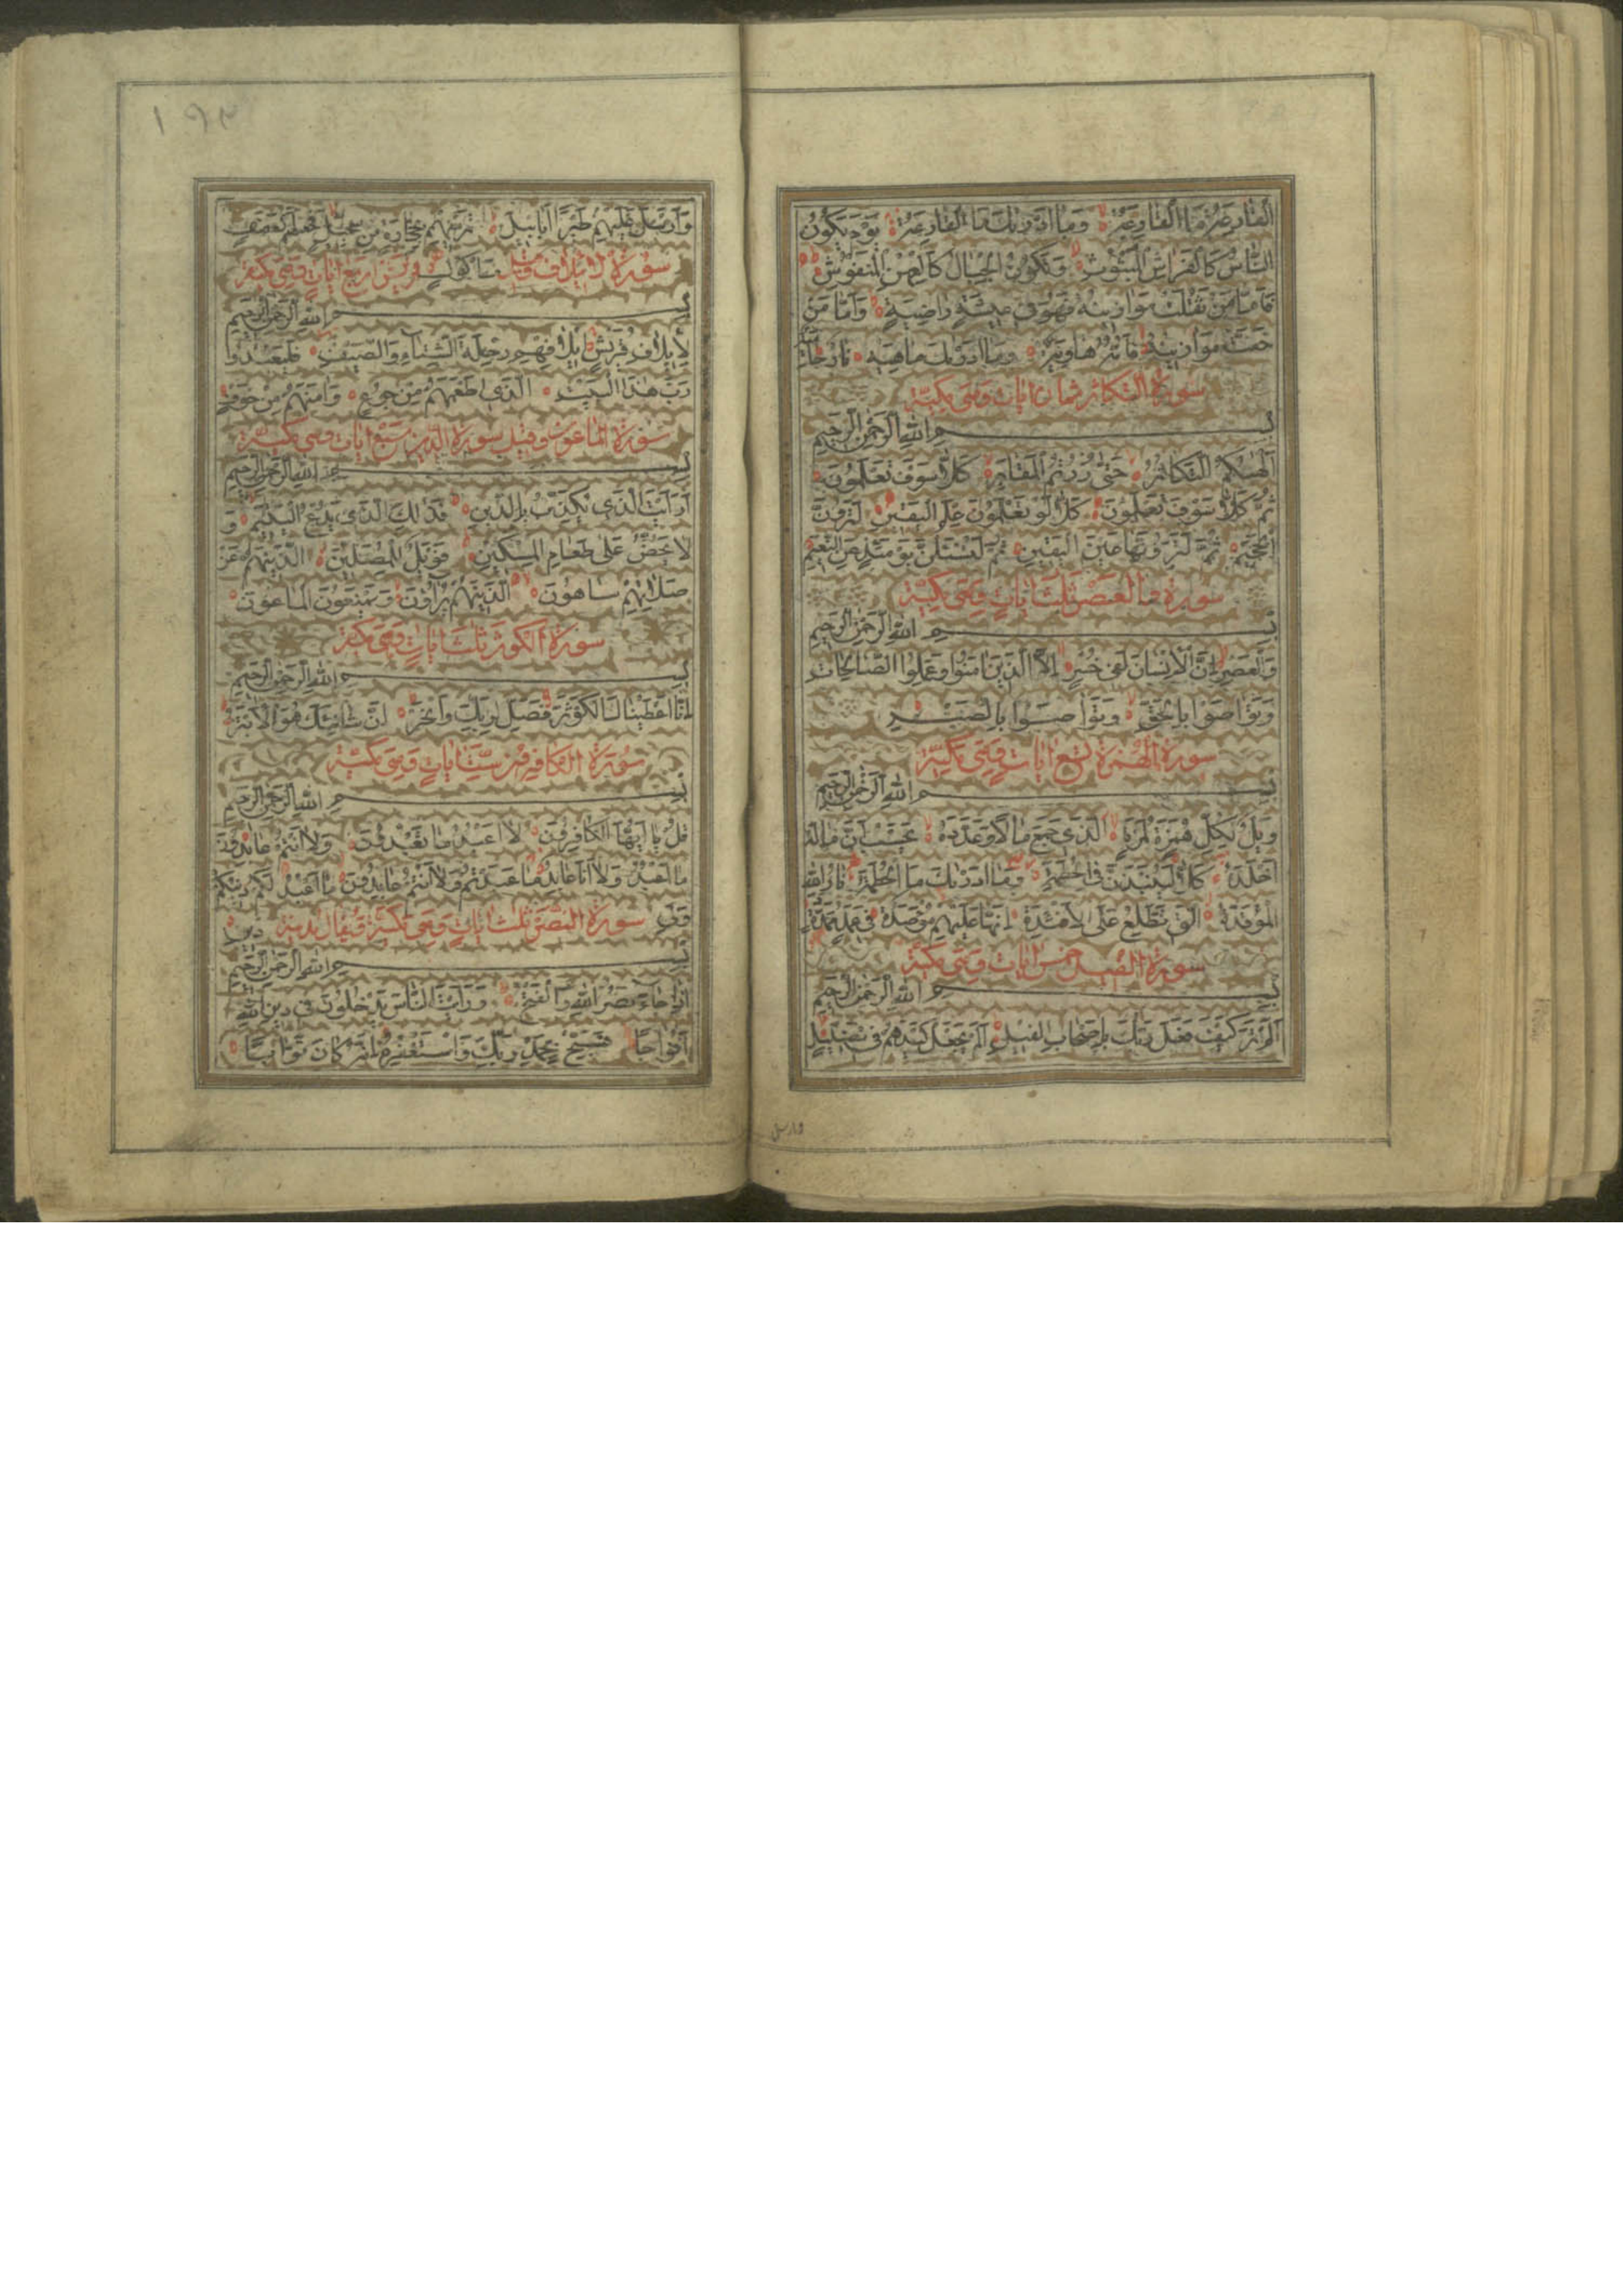 اَلْقَارِعَةُ مَا الْقَارِعَةُ وَمَا اَدْرٰيكَ مَا الْقَارِعَةُ يَوْمَ يَكُونُ
النَّاسُ كَالْفَرَاشِ الْمَبْثُوثِ وَتَكُونُ الْجِبَالُ كَالْعِهْنِ الْمَنْفُوشِ
فَاَمَّا مَنْ ثَقُلَتْ مَوَازِينُهُ فَهُوَ فِي عِيشَةٍ رَاضِيَةٍ وَاَمَّا مَنْ
خَفَّتْ مَوَازِينُهُ فَاُمُّهُ هَاوِيَةٌ وَمَا اَدْرٰيكَ مَاهِيَهْ نَارٌ حَامِيَةٌ
سورة التكاثر ثمان ايات وهي مكية
بسم الله الرحمن الرحيم
اَلْهٰيكُمُ التَّكَاثُرُ حَتّٰى زُرْتُمُ الْمَقَابِرَ كَلَّا سَوْفَ تَعْلَمُونَ
ثُمَّ كَلَّا سَوْفَ تَعْلَمُونَ كَلَّا لَوْ تَعْلَمُونَ عِلْمَ الْيَقِينِ لَتَرَوُنَّ
الْجَحِيمَ ثُمَّ لَتَرَوُنَّهَا عَيْنَ الْيَقِينِ ثُمَّ لَتُسْئَلُنَّ يَوْمَئِذٍ عَنِ النَّعِيمِ
سورة والعصر ثلث ايات وهي مكية
بسم الله الرحمن الرحيم
وَالْعَصْرِ اِنَّ الْاِنْسَانَ لَفِي خُسْرٍ اِلَّا الَّذِينَ اٰمَنُوا وَعَمِلُوا الصَّالِحَاتِ
وَتَوَاصَوْا بِالْحَقِّ وَتَوَاصَوْا بِالصَّبْرِ
سورة الهمزة تسع ايات وهي مكية
بسم الله الرحمن الرحيم
وَيْلٌ لِكُلِّ هُمَزَةٍ لُمَزَةٍ الَّذِي جَمَعَ مَالًا وَعَدَّدَهُ يَحْسَبُ اَنَّ مَالَهُ
اَخْلَدَهُ كَلَّا لَيُنْبَذَنَّ فِي الْحُطَمَةِ وَمَا اَدْرٰيكَ مَا الْحُطَمَةُ نَارُ اللّٰهِ
الْمُوقَدَةُ الَّتِي تَطَّلِعُ عَلَى الْاَفْئِدَةِ اِنَّهَا عَلَيْهِمْ مُؤْصَدَةٌ فِي عَمَدٍ مُمَدَّدَةٍ
سورة الفيل خمس ايات وهي مكية
بسم الله الرحمن الرحيم
اَلَمْ تَرَ كَيْفَ فَعَلَ رَبُّكَ بِاَصْحَابِ الْفِيلِ اَلَمْ يَجْعَلْ كَيْدَهُمْ فِي تَضْلِيلٍ
وارسل
١٩٣
وَاَرْسَلَ عَلَيْهِمْ طَيْرًا اَبَابِيلَ تَرْمِيهِمْ بِحِجَارَةٍ مِنْ سِجِّيلٍ فَجَعَلَهُمْ كَعَصْفٍ
سورة لايلاف وقيل مَأْكُولٍ قريش اربع ايات وهي مكية
بسم الله الرحمن الرحيم
لِاِيلَافِ قُرَيْشٍ اِيلَافِهِمْ رِحْلَةَ الشِّتَاءِ وَالصَّيْفِ فَلْيَعْبُدُوا
رَبَّ هٰذَا الْبَيْتِ الَّذِي اَطْعَمَهُمْ مِنْ جُوعٍ وَاٰمَنَهُمْ مِنْ خَوْفٍ
سورة الماعون وقيل سورة الدين سبع ايات وهي مكية
بسم الله الرحمن الرحيم
اَرَاَيْتَ الَّذِي يُكَذِّبُ بِالدِّينِ فَذٰلِكَ الَّذِي يَدُعُّ الْيَتِيمَ وَ
لَا يَحُضُّ عَلٰى طَعَامِ الْمِسْكِينِ فَوَيْلٌ لِلْمُصَلِّينَ الَّذِينَ هُمْ عَنْ
صَلَاتِهِمْ سَاهُونَ الَّذِينَ هُمْ يُرَاؤُنَ وَيَمْنَعُونَ الْمَاعُونَ
سورة الكوثر ثلث ايات وهي مكية
بسم الله الرحمن الرحيم
اِنَّا اَعْطَيْنَاكَ الْكَوْثَرَ فَصَلِّ لِرَبِّكَ وَانْحَرْ اِنَّ شَانِئَكَ هُوَ الْاَبْتَرُ
سورة الكافرون ست ايات وهي مكية
بسم الله الرحمن الرحيم
قُلْ يَا اَيُّهَا الْكَافِرُونَ لَا اَعْبُدُ مَا تَعْبُدُونَ وَلَا اَنْتُمْ عَابِدُونَ
مَا اَعْبُدُ وَلَا اَنَا عَابِدٌ مَا عَبَدْتُمْ وَلَا اَنْتُمْ عَابِدُونَ مَا اَعْبُدُ لَكُمْ دِينُكُمْ
وَلِيَ سورة النصر ثلث ايات وهي مكية وقيل مدنية دِينِ
بسم الله الرحمن الرحيم
اِذَا جَاءَ نَصْرُ اللّٰهِ وَالْفَتْحُ وَرَاَيْتَ النَّاسَ يَدْخُلُونَ فِي دِينِ اللّٰهِ
اَفْوَاجًا فَسَبِّحْ بِحَمْدِ رَبِّكَ وَاسْتَغْفِرْهُ اِنَّهُ كَانَ تَوَّابًا